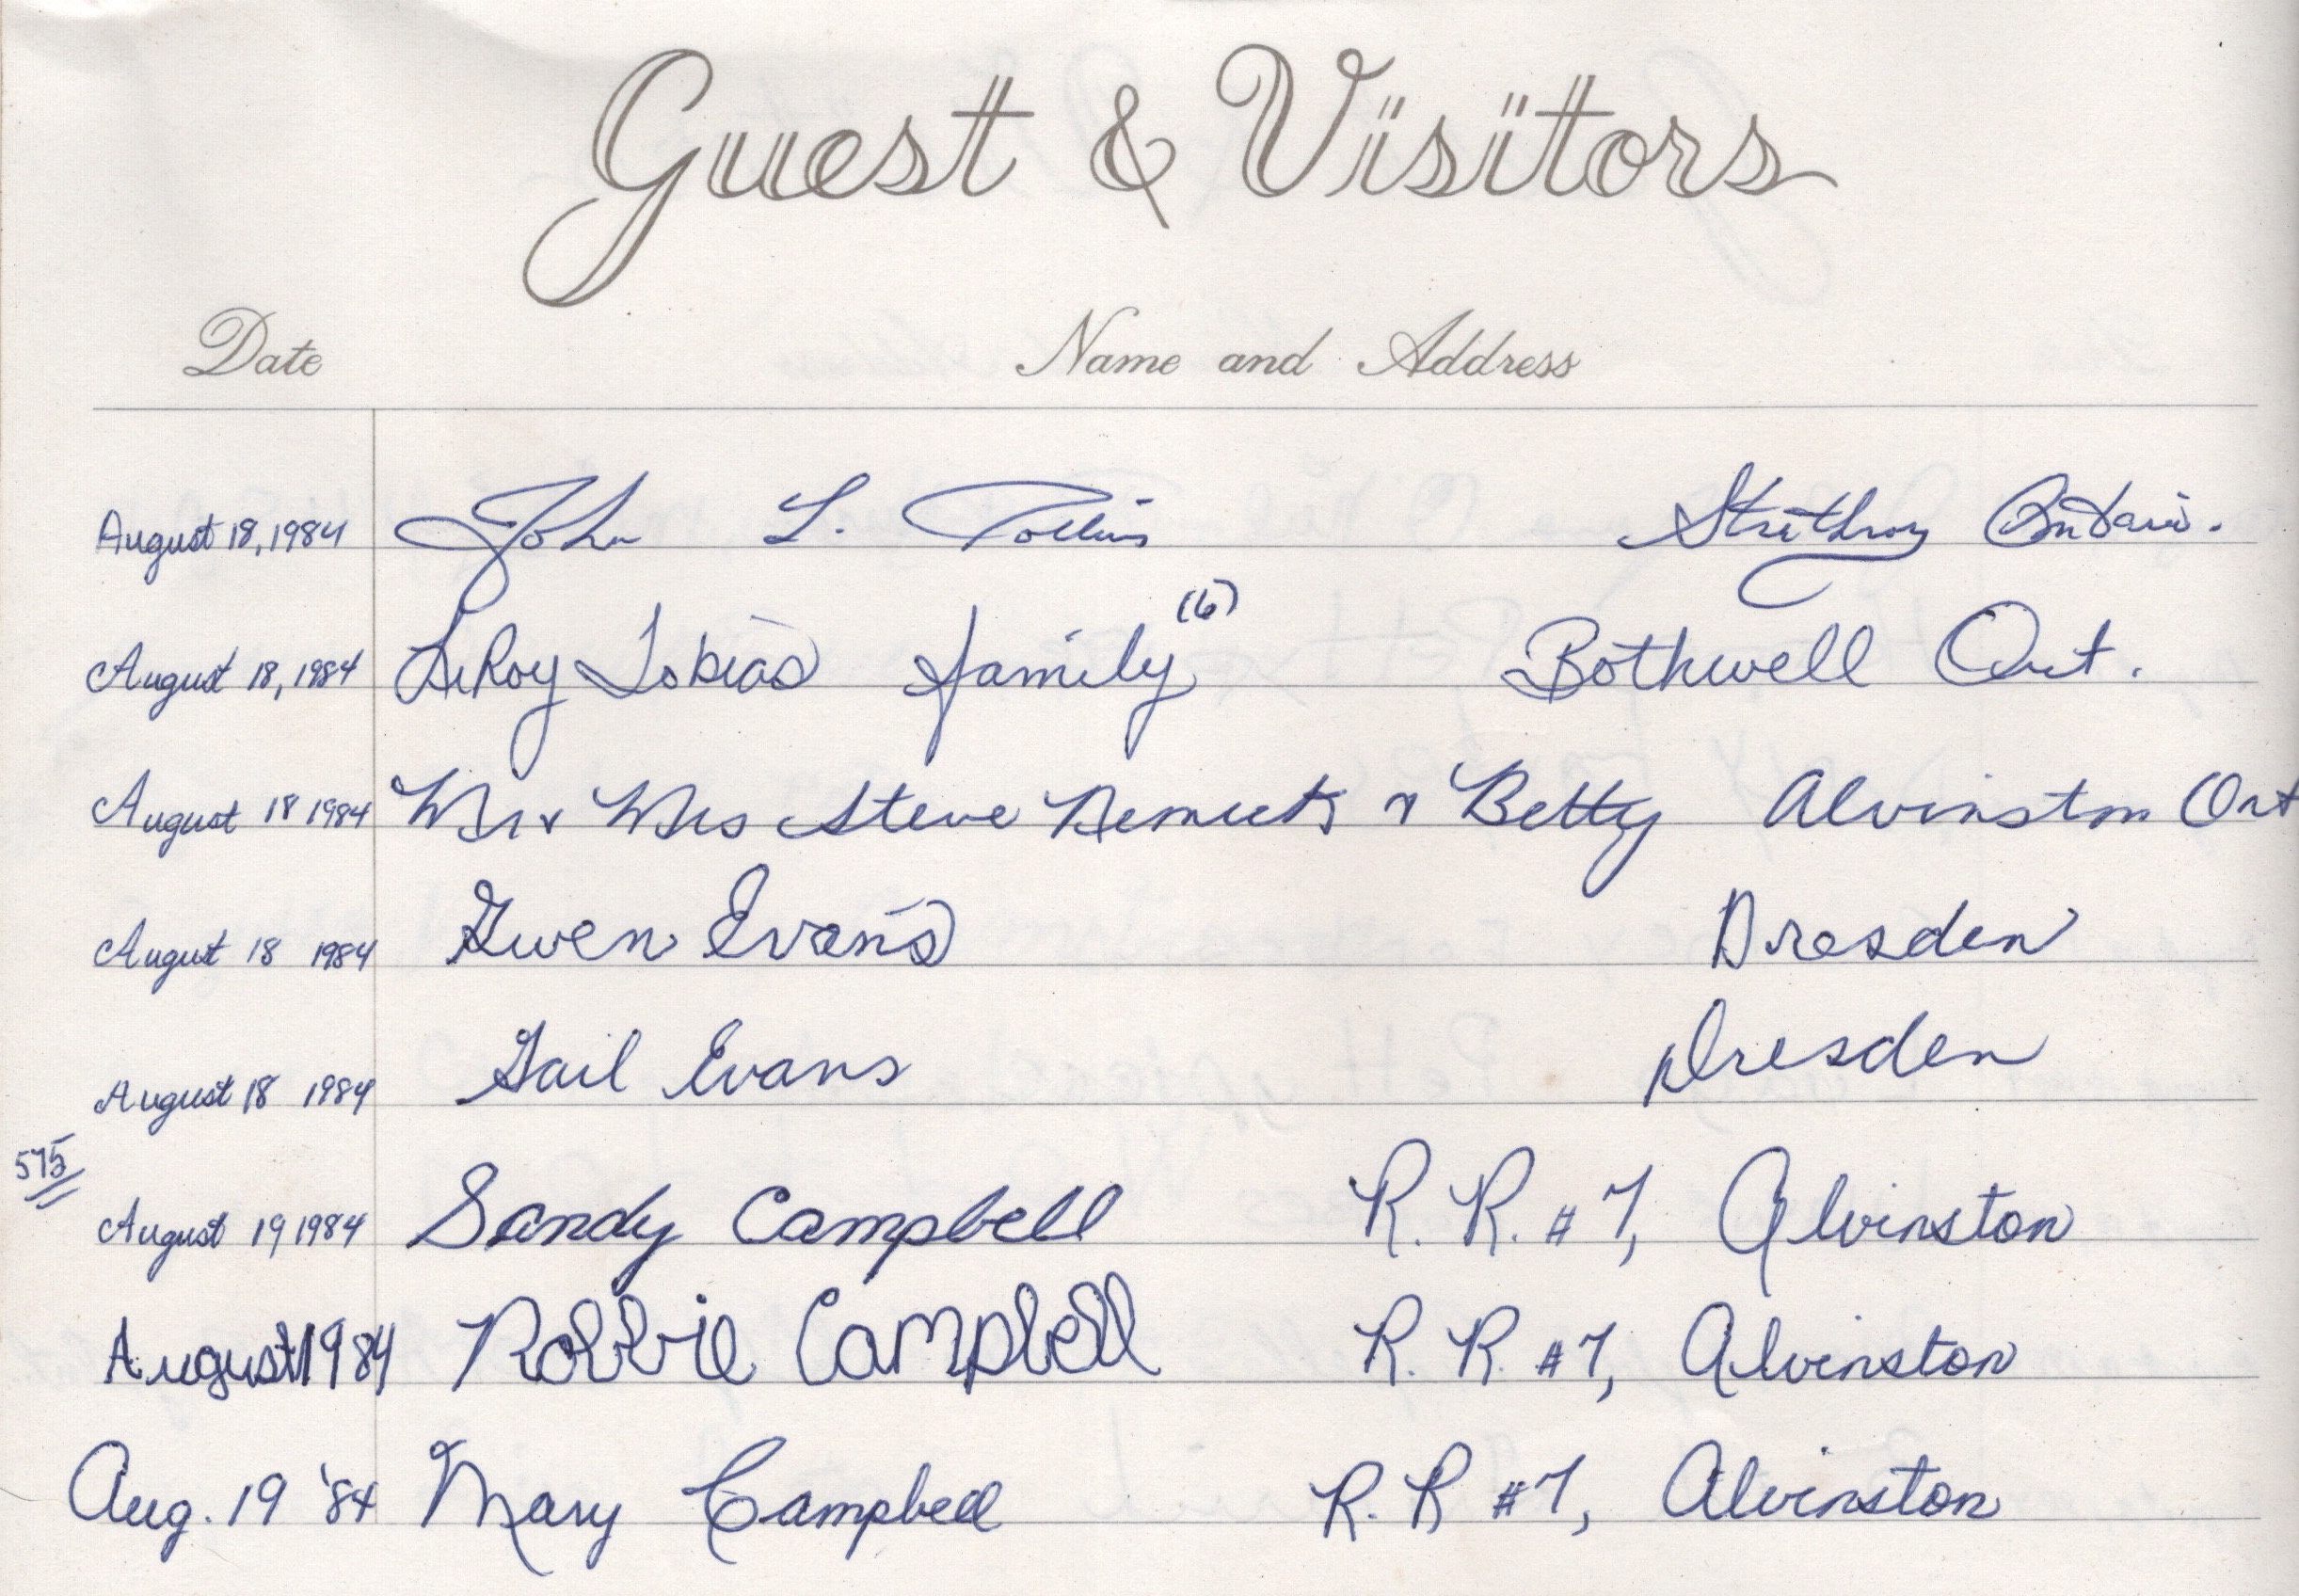 Guest & Visitors
Date Name and Address
August 18, 1984 John L. Collins Strathroy Ontario.
August 18, 1984 LeRoy Tobias family (6) Bothwell Ont.
August 18 1984 Mr & Mrs Steve & Betty Alvinston Ont
August 18 1984 Gwen Evans Dresden
August 18 1984 Gail Evans Dresden
575
August 19 1984 Sandy Campbell R. R. #7, Alvinston
August 1984 Robbie Campbell R. R. #7, Alvinston
Aug. 19 '84 Mary Campbell R. R #7, Alvinston